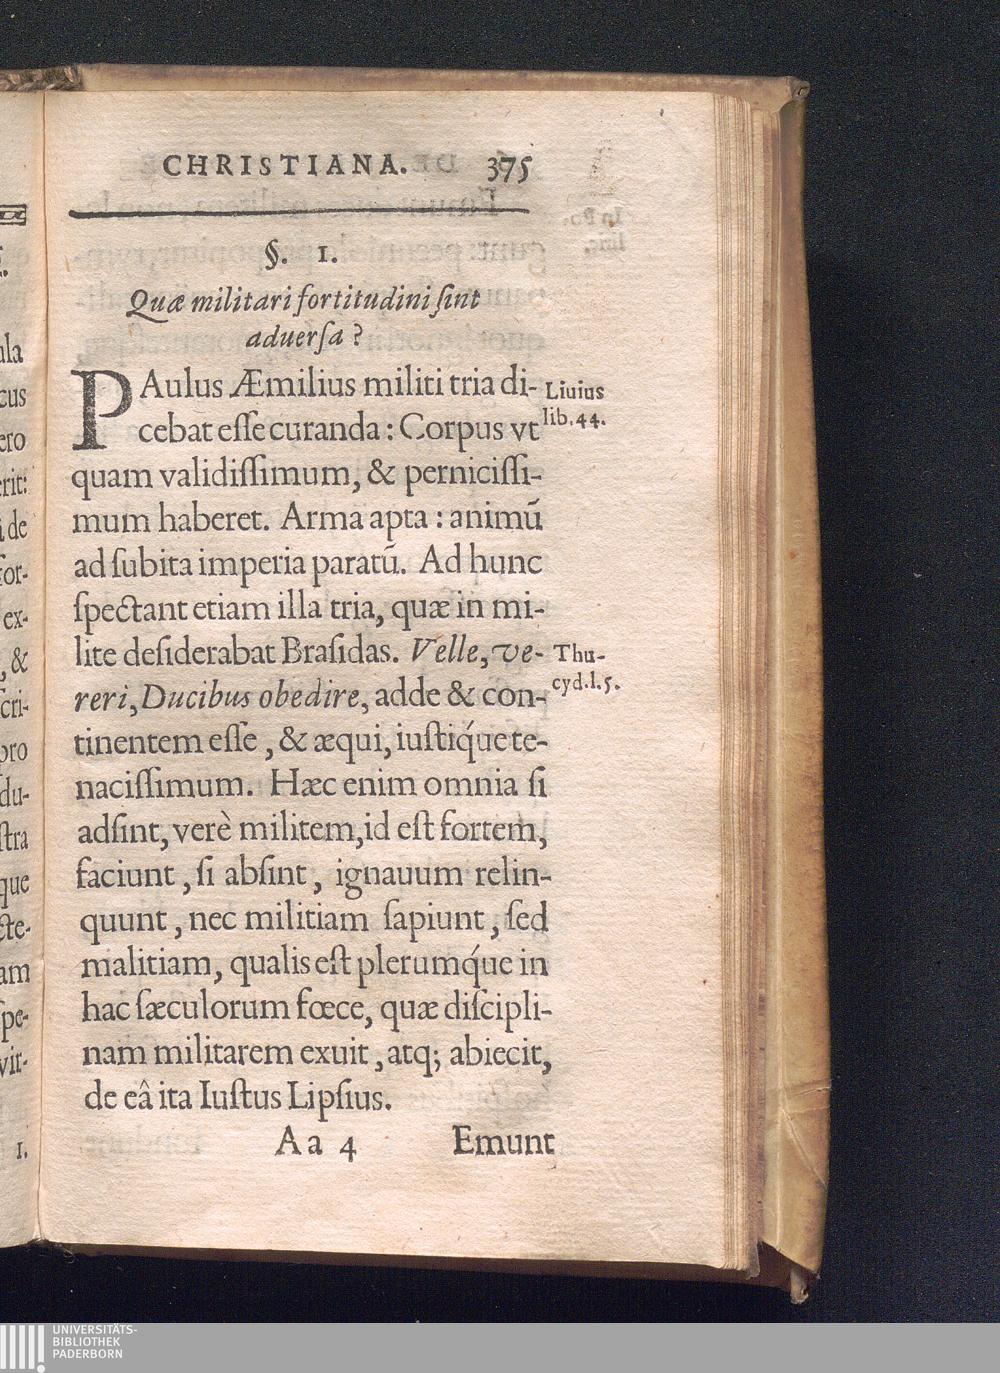 CHRISTIANA. 375
§. 1.
Quæ militari fortitudini ſint
aduerſa ?
PAulus Æmilius militi tria di-
Liuius
cebat eſſe curanda : Corpus vt
lib. 44.
quam validiſſimum, & perniciſſi-
mum haberet. Arma apta : animũ
ad ſubita imperia paratũ. Ad hunc
ſpectant etiam illa tria, quæ in mi-
lite deſiderabat Braſidas. Velle, ve-
Thu-
reri, Ducibus obedire, adde & con-
cyd. l. 5.
tinentem eſſe , & æqui, iuſtiq́ue te-
naciſſimum. Hæc enim omnia ſi
adſint, verè militem, id eſt fortem,
faciunt , ſi abſint , ignauum relin-
quunt , nec militiam ſapiunt , ſed
malitiam, qualis eſt plerumq́ue in
hac ſæculorum fœce, quæ diſcipli-
nam militarem exuit , atq; abiecit,
de eâ ita Iuſtus Lipſius.
Aa 4 Emunt
ula
cus
ero
erit:
i de
for-
ex-
, &
ſcri-
pro
du-
ſtra
que
cte-
am
ſpe-
vir-
1.
UNIVERSITÄTS-
BIBLIOTHEK
PADERBORN